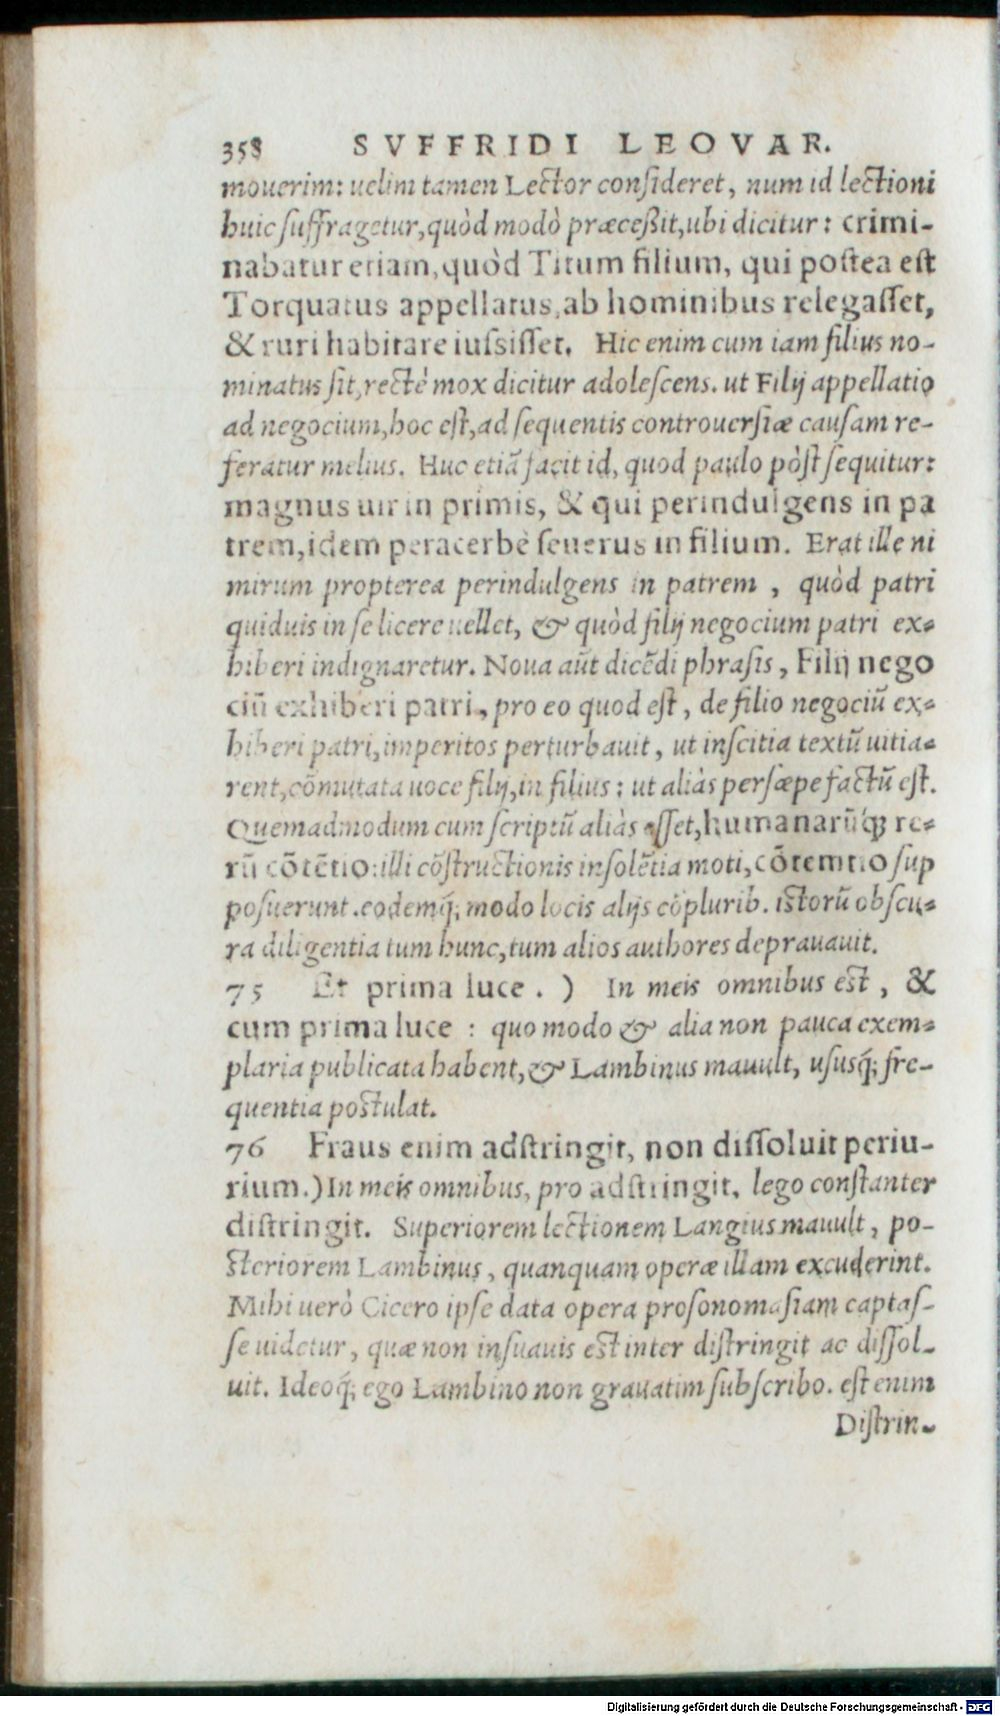 358 SVFFRIDI LEOVAR.
mouerim: uelim tamen Lector consideret, num id lectioni
huic suffragetur, quòd modò præceßit, ubi dicitur: crimi-
nabatur etiam, quòd Titum filium, qui postea est
Torquatus appellatus, ab hominibus relegasset,
& ruri habitare iussisset. Hic enim cum iam filius no-
minatus sit, rectè mox dicitur adolescens. ut Filij appellatio
ad negocium, hoc est, ad sequentis controuersiæ causam re-
feratur melius. Huc etiã facit id, quod paulo pòst sequitur:
magnus uir in primis, & qui perindulgens in pa
trem, idem peracerbè seuerus in filium. Erat ille ni
mirum propterea perindulgens in patrem, quòd patri
quiduis in se licere uellet, & quòd filij negocium patri ex-
hiberi indignaretur. Noua aũt dicẽdi phrasis, Filij nego
ciũ exhiberi patri, pro eo quod est, de filio negociũ ex-
hiberi patri, imperitos perturbauit, ut inscitia textũ uitia-
rent, cõmutata uoce filij, in filius: ut aliàs persæpe factũ est.
Quemadmodum cum scriptũ aliàs esset, humanarũq́; re-
rũ cõtẽtio: illi cõstructionis insolẽtia moti, cõtemtio sup
posuerunt. eodemq́; modo locis alijs cõplurib. istorũ obscu-
ra diligentia tum hunc, tum alios authores deprauauit.
75 Et prima luce.) In meis omnibus est, &
cum prima luce: quo modo & alia non pauca exem-
plaria publicata habent, & Lambinus mauult, ususq́; fre-
quentia postulat.
76 Fraus enim adstringit, non dissoluit periu-
rium.) In meis omnibus, pro adstringit, lego constanter
distringit. Superiorem lectionem Langius mauult, po-
steriorem Lambinus, quanquam operæ illam excuderint.
Mihi uerò Cicero ipse data opera prosonomasiam captas-
se uidetur, quæ non insuauis est inter distringit ac dissol-
uit. Ideoq́; ego Lambino non grauatim subscribo. est enim
Distrin-
Digitalisierung gefördert durch die Deutsche Forschungsgemeinschaft - DFG